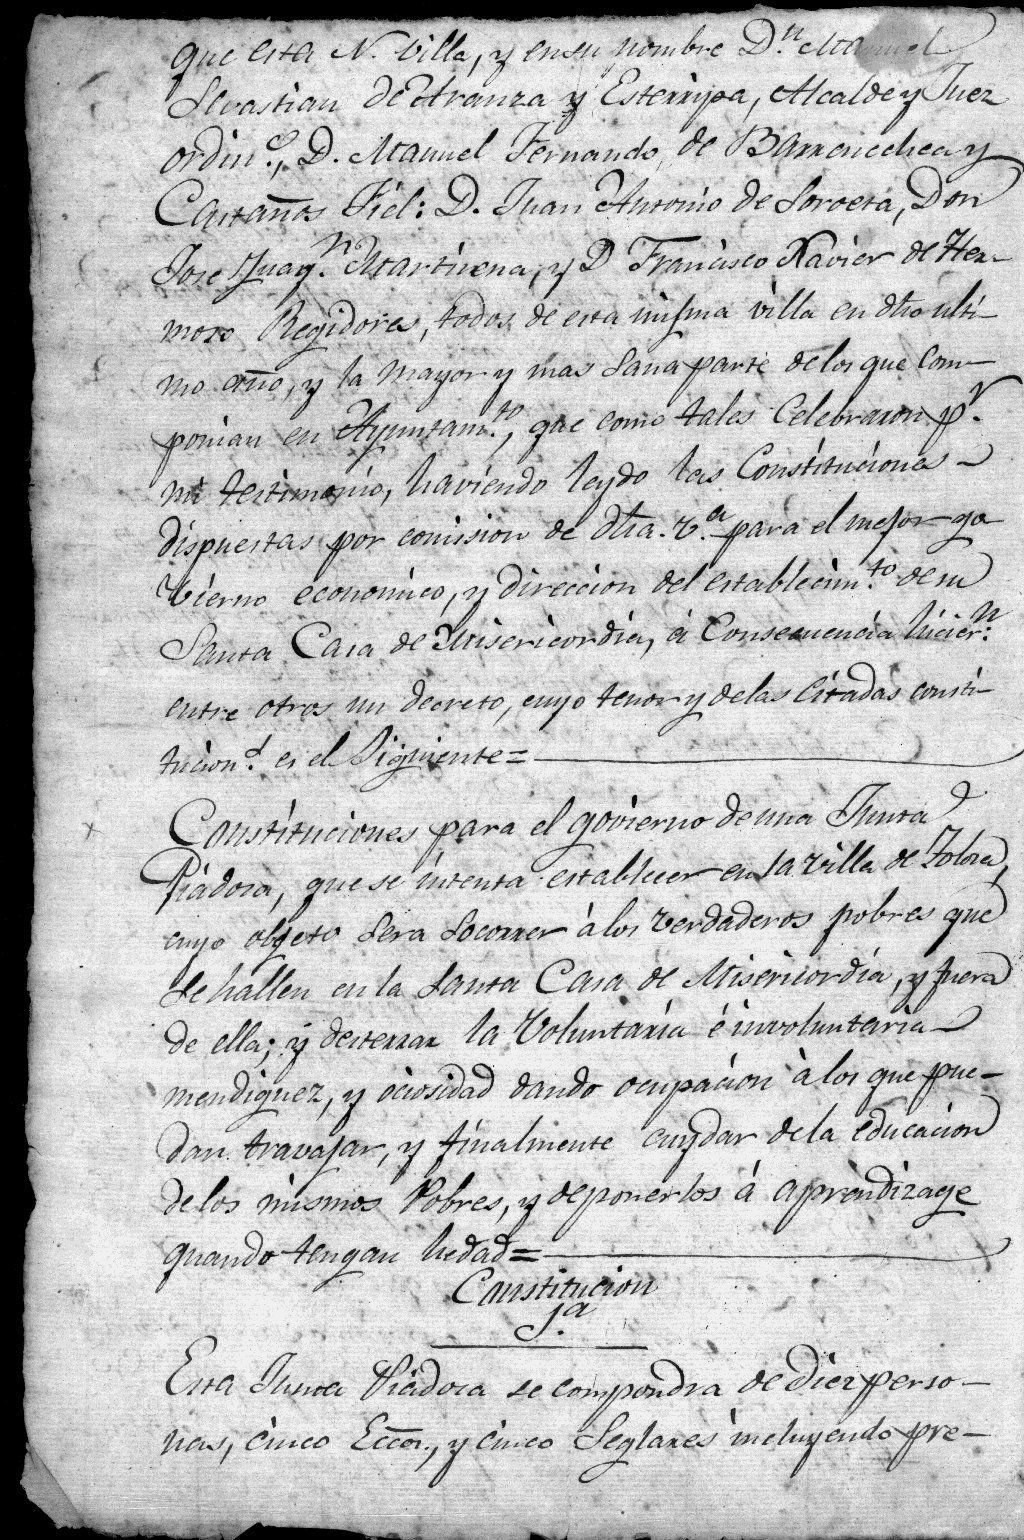 que esta N. Villa, y en su nombre D.n Manuel
Sevastian de Aranza y Esterripa, Alcalde y Juez
ordin.o, D. Manuel Fernando de Barrenechea y
Castaños Fiel: D. Juan Antonio de Soroeta, Don
Jose Juaq.n Martirena, y D Francisco Xavier de Her-
moso Regidores, todos de esta misma villa en dho ulti-
mo año, y la mayor y mas sana parte de los que com-
ponian en Ayuntam.to, que como tales Celebraron p.r
mi testimonio, haviendo leydo las Constituciones
dispuestas por comision de dha. v.a para el mejor go-
vierno economico, y direccion del establecim.to de su
Santa Casa de Misericordia, á Consecuencia hicier.n
entre otros un decreto, cuyo tenor y de las citadas consti-
tucion.s es el Siguiente=
Constituciones para el govierno de una Junta
Piadosa, que se intenta establecer en la Villa de Tolosa,
cuyo objeto sera socorrer à los verdaderos pobres que
se hallen en la Santa Casa de Misericordia, y fuera
de ella; y desterrar la Voluntaria é involuntaria
mendiguez, y ociosidad dando ocupacion à los que pue-
dan travajar, y finalmente cuydar de la educacion
de los mismos Pobres, y de ponerlos á aprendizage
quando tengan hedad=
Constitucion
1.a
Esta Junta Piadosa se compondra de Diez perso-
nas, cinco Eccos., y cinco Seglares incluyendo pre-